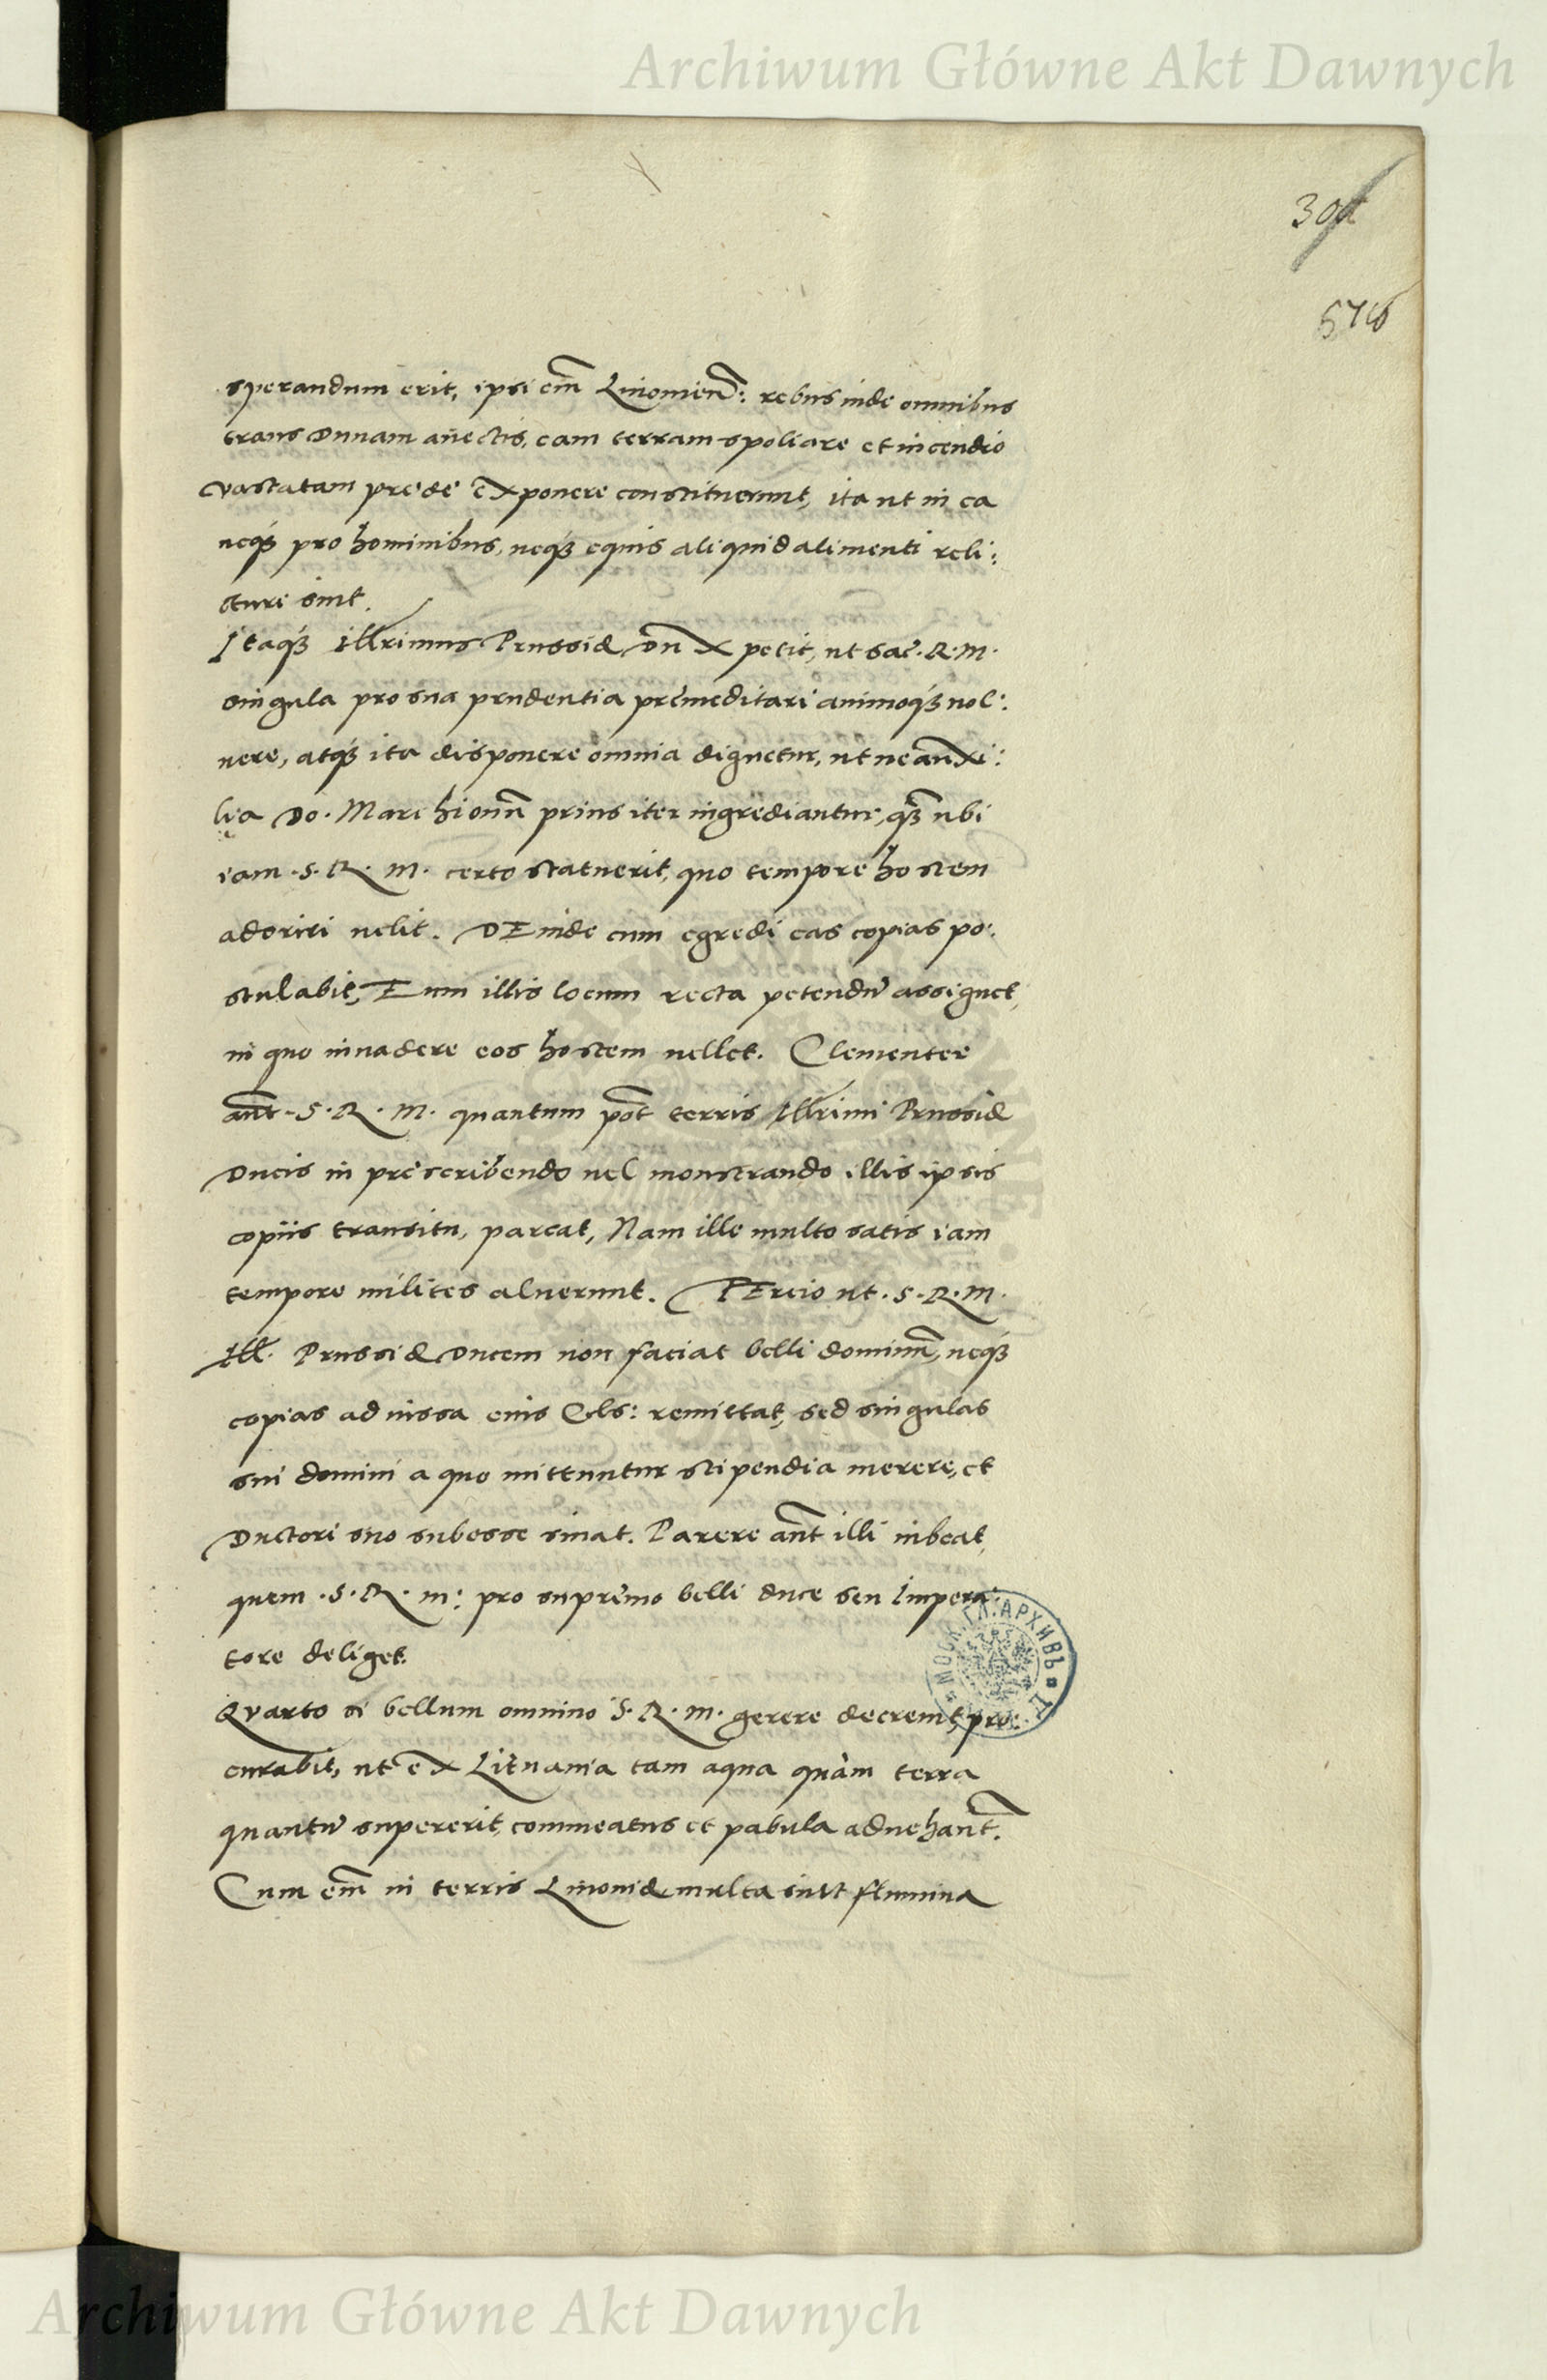 Archiwum Główne Akt Dawnych
sperandum erit, ipsi em̃ Liuonien̄: rebus inde omnibus
trans Dunam auectis, eam terram spoliare et incendio
vastatam prede exponere constituerunt, ita ut in ea
neqꝫ pro hominibus, neqꝫ equis aliquid alimenti reli:
cturi sint.
Itaqꝫ Illrimus Prussiæ Dux petit, ut sac. R. M.
singula pro sua prudentia premeditari animoqꝫ uol:
uere, atqꝫ ita disponere omnia dignetur, ut ne auxi:
lia Do. Marchionū prius iter ingrediantur, qꝫ̄ ubi
iam .S. R. M. certo statuerit, quo tempore hostem
adoriri uelit. DEinde cum egredi eas copias po:
stulabit, Eum illis locum recta petendū assignet,
in quo inuadere eos hostem uellet. Clementer
aūt .S. R. M. quantum pōt terris Illrimi Prussiæ
Ducis in prescribendo uel monstrando illis ipsis
copiis transitu, parcat, Nam ille multo satis iam
tempore milites aluerunt. TErcio ut .S. R. M.
Ill. Prussiæ Ducem non faciat belli dominū, neqꝫ
copias ad iussa eius Cels: remittat, sed singulas
sui domini a quo mittuntur stipendia merere, et
Ductori suo subesse sinat. Parere aūt illi iubeat,
quem .S. R. M: pro supremo belli duce seu Impera:
tore deliget.
Quarto si bellum omnino S. R. M. gerere decreuit, pro:
curabit, ut ex Lituania tam aqua quàm terra
quantū supererit, commeatus et pabula aduehant̄.
Cum em̃ in terris Liuoniæ multa sint flumina
МОСК. ГЛ. АРХИВЪ
Archiwum Główne Akt Dawnych